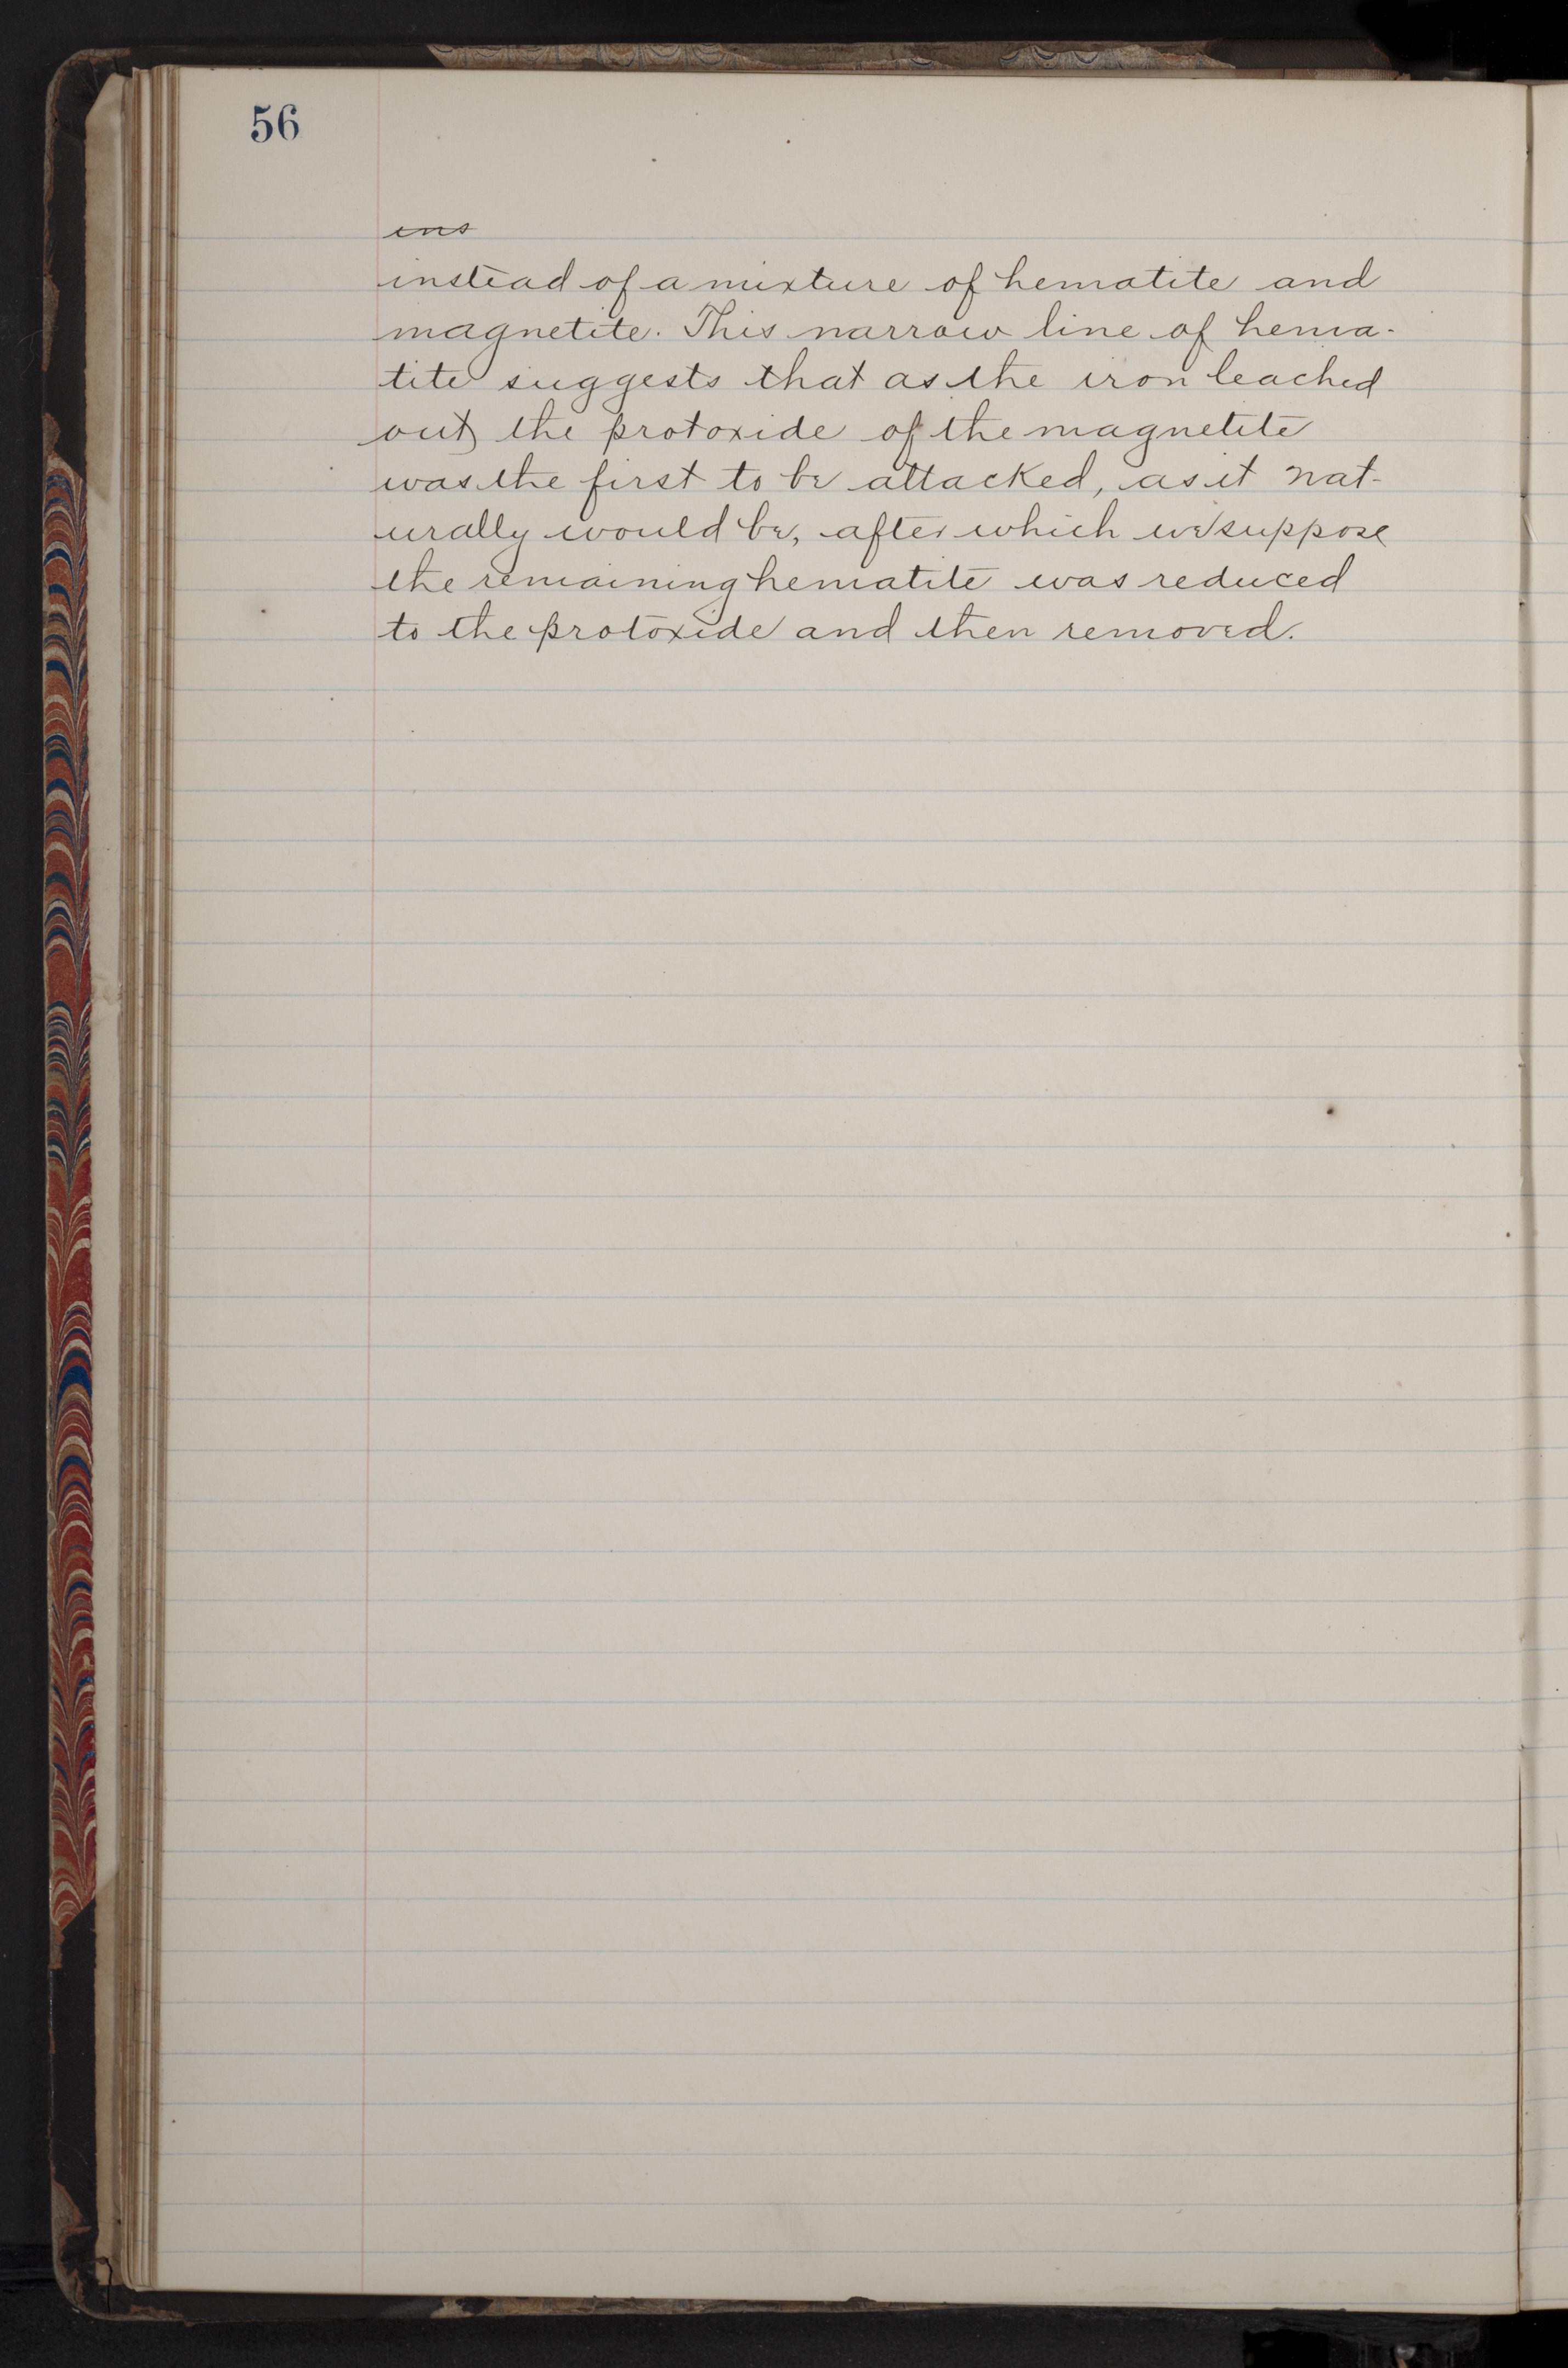 56
ins
instead of a mixture of hematite and
magnetite. This narrow line of hema-
tite suggests that as the iron leached
out, the protoxide of the magnetite
was the first to be attacked, as it nat-
urally would be, after which we suppose
the remaining hematite was reduced
to the protoxide and then removed.